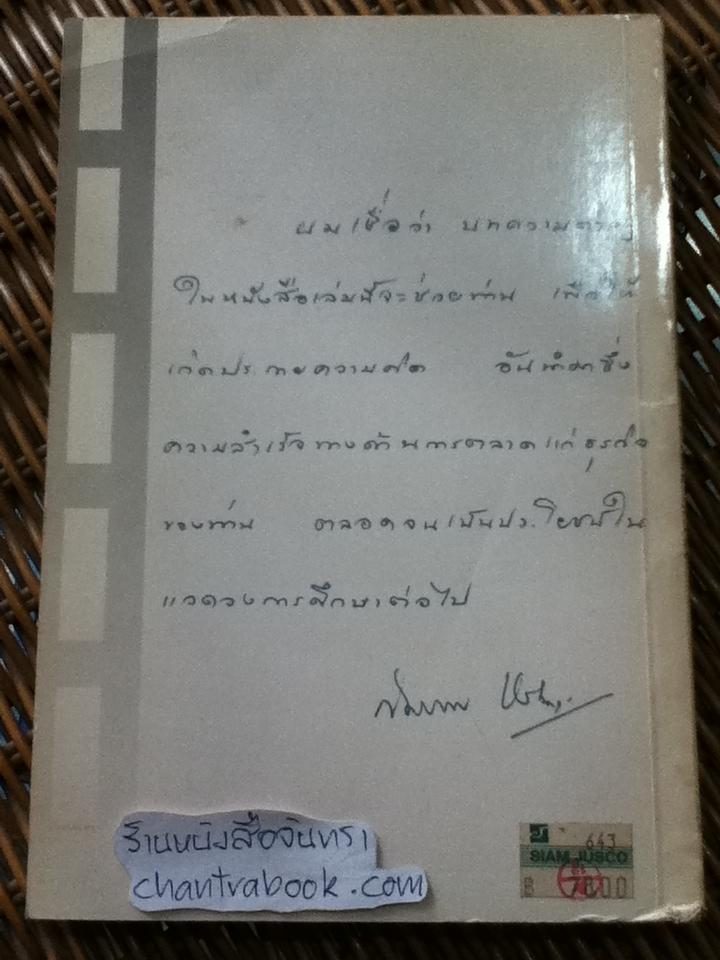 ผมเชื่อว่า บทความต่างๆ
ในหนังสือเล่มนี้จะช่วยท่าน เพื่อให้
เกิดประกายความคิด อันนำมาซึ่ง
ความสำเร็จทางด้านการตลาดแก่ธุรกิจ
ของท่าน ตลอดจนเป็นประโยชน์ใน
แวดวงการศึกษาต่อไป
ร้านหนังสือจันทรา
chantrabook.com
643
SIAM JUSCO
B 7800